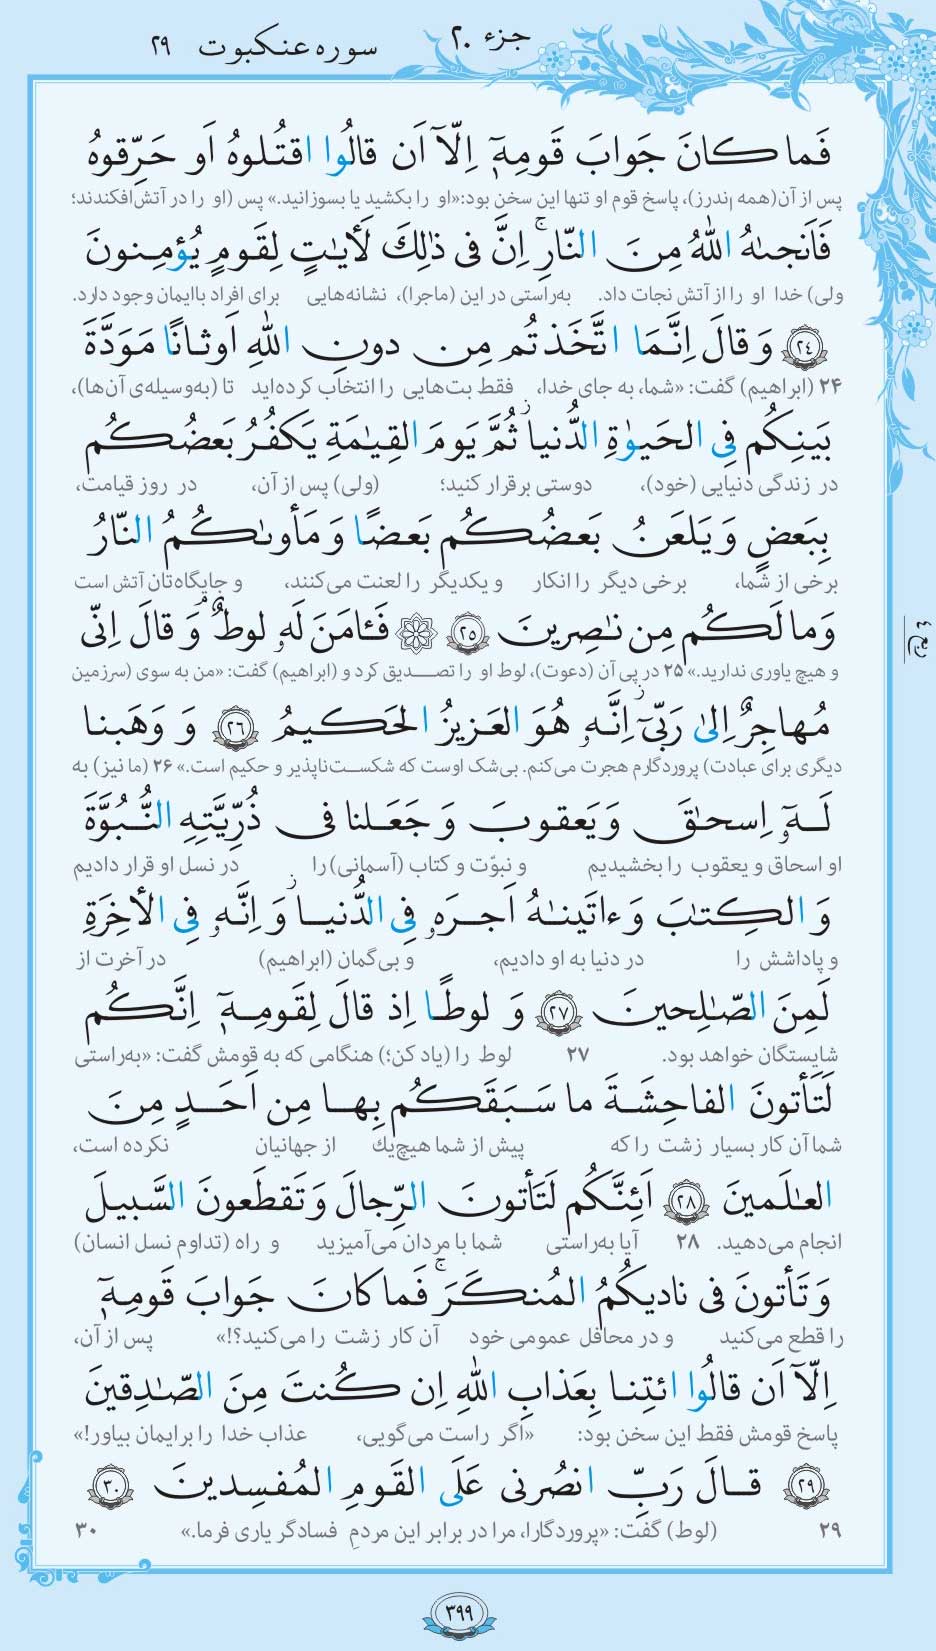 جزء ۲۰
سوره عنکبوت ۲۹
فَما کانَ جَوابَ قَومِهٖٓ اِلّآ اَن قالُوا اقتُلوهُ اَو حَرِّقوهُ
پس از آن (همه اندرز)، پاسخ قوم او تنها این سخن بود: «او را بکشید یا بسوزانید.» پس (او را در آتش افکندند؛
فَاَنجىٰهُ اللّٰهُ مِنَ النّارِ ۚ اِنَّ فى ذٰلِكَ لَأٓیٰتٍ لِقَومٍ یُؤمِنونَ
ولی) خدا او را از آتش نجات داد. به‌راستی در این (ماجرا)، نشانه‌هایی برای افراد باایمان وجود دارد.
﴿٢٤﴾ وَ قالَ اِنَّمَا اتَّخَذتُم مِن دونِ اللّٰهِ اَوثانًا مَوَدَّةَ
۲۴ (ابراهیم) گفت: «شما، به جای خدا، فقط بت‌هایی را انتخاب کرده‌اید تا (به‌وسیله‌ی آن‌ها)،
بَینِکُم فِى الحَیوٰةِ الدُّنیا ۖ ثُمَّ یَومَ القِیٰمَةِ یَکفُرُ بَعضُکُم
در زندگی دنیایی (خود)، دوستی برقرار کنید؛ (ولی) پس از آن، در روز قیامت،
بِبَعضٍ وَ یَلعَنُ بَعضُکُم بَعضًا وَ مَأوىٰکُمُ النّارُ
برخی از شما، برخی دیگر را انکار و یکدیگر را لعنت می‌کنند، و جایگاه‌تان آتش است
وَ ما لَکُم مِن نٰصِرینَ ﴿٢٥﴾ ۞ فَـٔامَنَ لَهٗ لوطٌ ۘ وَ قالَ اِنّى
و هیچ یاوری ندارید.» ۲۵ در پی آن (دعوت)، لوط او را تصـدیق کرد و (ابراهیم) گفت: «من به سوی (سرزمین
مُهاجِرٌ اِلىٰ رَبّىٓ ۖ اِنَّهٗ هُوَ العَزیزُ الحَکیمُ ﴿٢٦﴾ وَ وَهَبنا
دیگری برای عبادت) پروردگارم هجرت می‌کنم. بی‌شک اوست که شکست‌ناپذیر و حکیم است.» ۲۶ (ما نیز) به
لَهٗٓ اِسحٰقَ وَ یَعقوبَ وَ جَعَلنا فى ذُرِّیَّتِهِ النُّبُوَّةَ
او اسحاق و یعقوب را بخشیدیم و نبوّت و کتاب (آسمانی) را در نسل او قرار دادیم
وَ الکِتٰبَ وَ ءاتَینٰهُ اَجرَهٗ فِى الدُّنیا ۖ وَ اِنَّهٗ فِى الأٓخِرَةِ
و پاداشش را در دنیا به او دادیم، و بی‌گمان (ابراهیم) در آخرت از
لَمِنَ الصّٰلِحینَ ﴿٢٧﴾ وَ لوطًا اِذ قالَ لِقَومِهٖٓ اِنَّکُم
شایستگان خواهد بود. ۲۷ لوط را (یاد کن؛) هنگامی که به قومش گفت: «به‌راستی
لَتَأتونَ الفاحِشَةَ ما سَبَقَکُم بِها مِن اَحَدٍ مِنَ
شما آن کار بسیار زشت را که پیش از شما هیچ‌یك از جهانیان نکرده است،
العٰلَمینَ ﴿٢٨﴾ اَئِنَّکُم لَتَأتونَ الرِّجالَ وَ تَقطَعونَ السَّبیلَ
انجام می‌دهید. ۲۸ آیا به‌راستی شما با مردان می‌آمیزید و راه (تداوم نسل انسان)
وَ تَأتونَ فى نادیکُمُ المُنکَرَ ۚ فَما کانَ جَوابَ قَومِهٖٓ
را قطع می‌کنید و در محافل عمومی خود آن کار زشت را می‌کنید؟!» پس از آن،
اِلّآ اَن قالُوا ائتِنا بِعَذابِ اللّٰهِ اِن کُنتَ مِنَ الصّٰدِقینَ
پاسخ قومش فقط این سخن بود: «اگر راست می‌گویی، عذاب خدا را برایمان بیاور!»
﴿٢٩﴾ قالَ رَبِّ انصُرنى عَلَى القَومِ المُفسِدینَ ﴿٣٠﴾
۲۹ (لوط) گفت: «پروردگارا، مرا در برابر این مردمِ فسادگر یاری فرما.» ۳۰
ربع ٤
۳۹۹